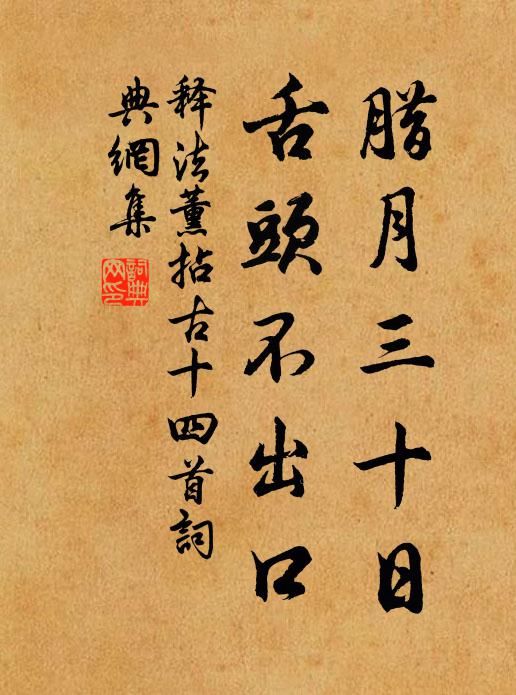 腊月三十日
舌頭不出口
释法薰拈古十四首詞
典網集
詞典網印